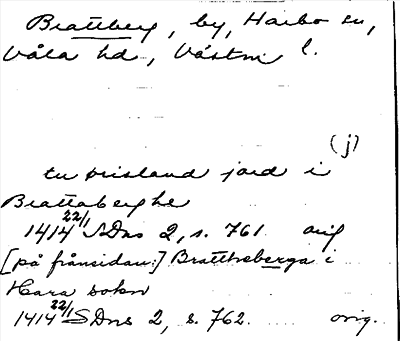 Brattberg, by, Harbo sn,
Våla hd, Västm l.
(j)
tu örisland jord i
Brattaberghe
1414 22/1 SDns 2, s. 761 orig
[på frånsidan:] Bratthaberga i
Hara sokn
1414 22/1 SDns 2, s. 762. orig.